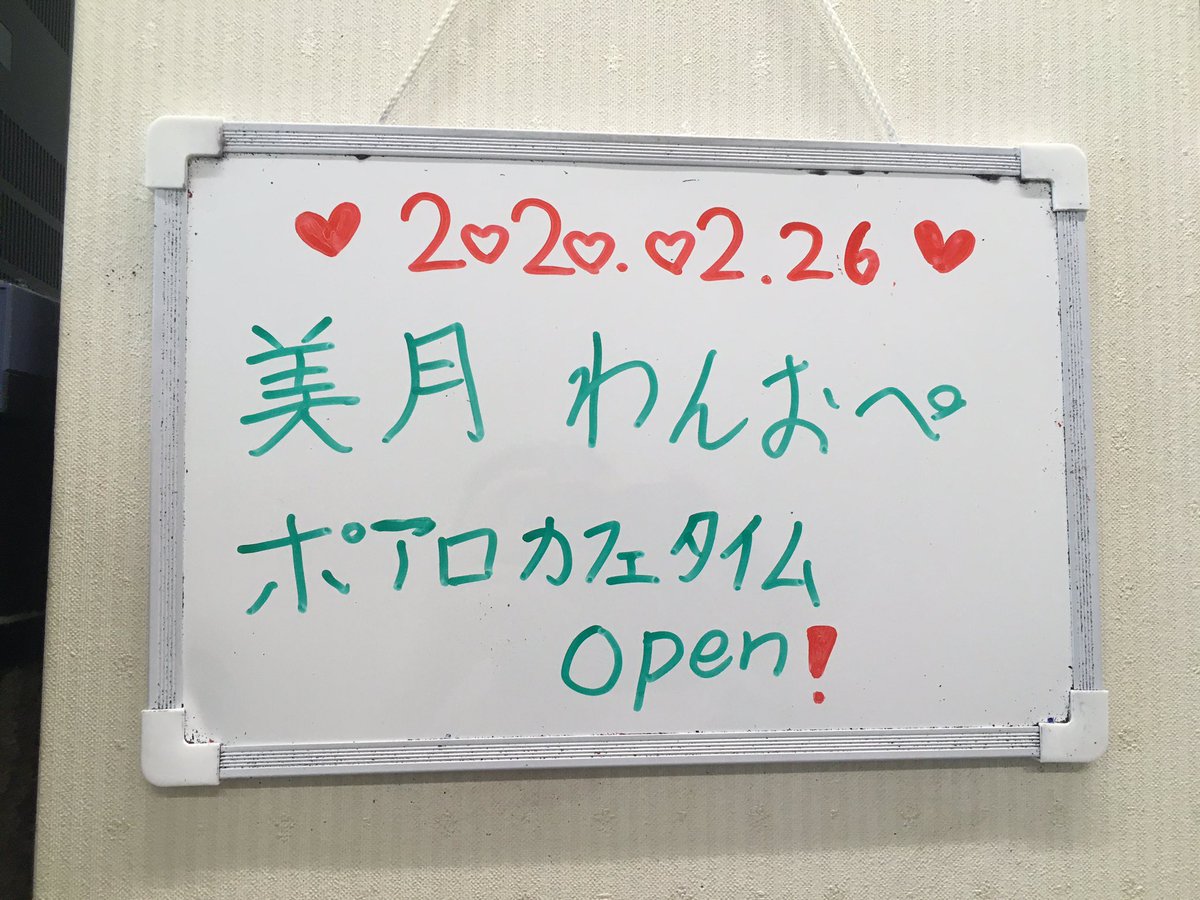 ♥ 2020.02.26 ♥
美月 わんおぺ
ポアロカフェタイム
open!